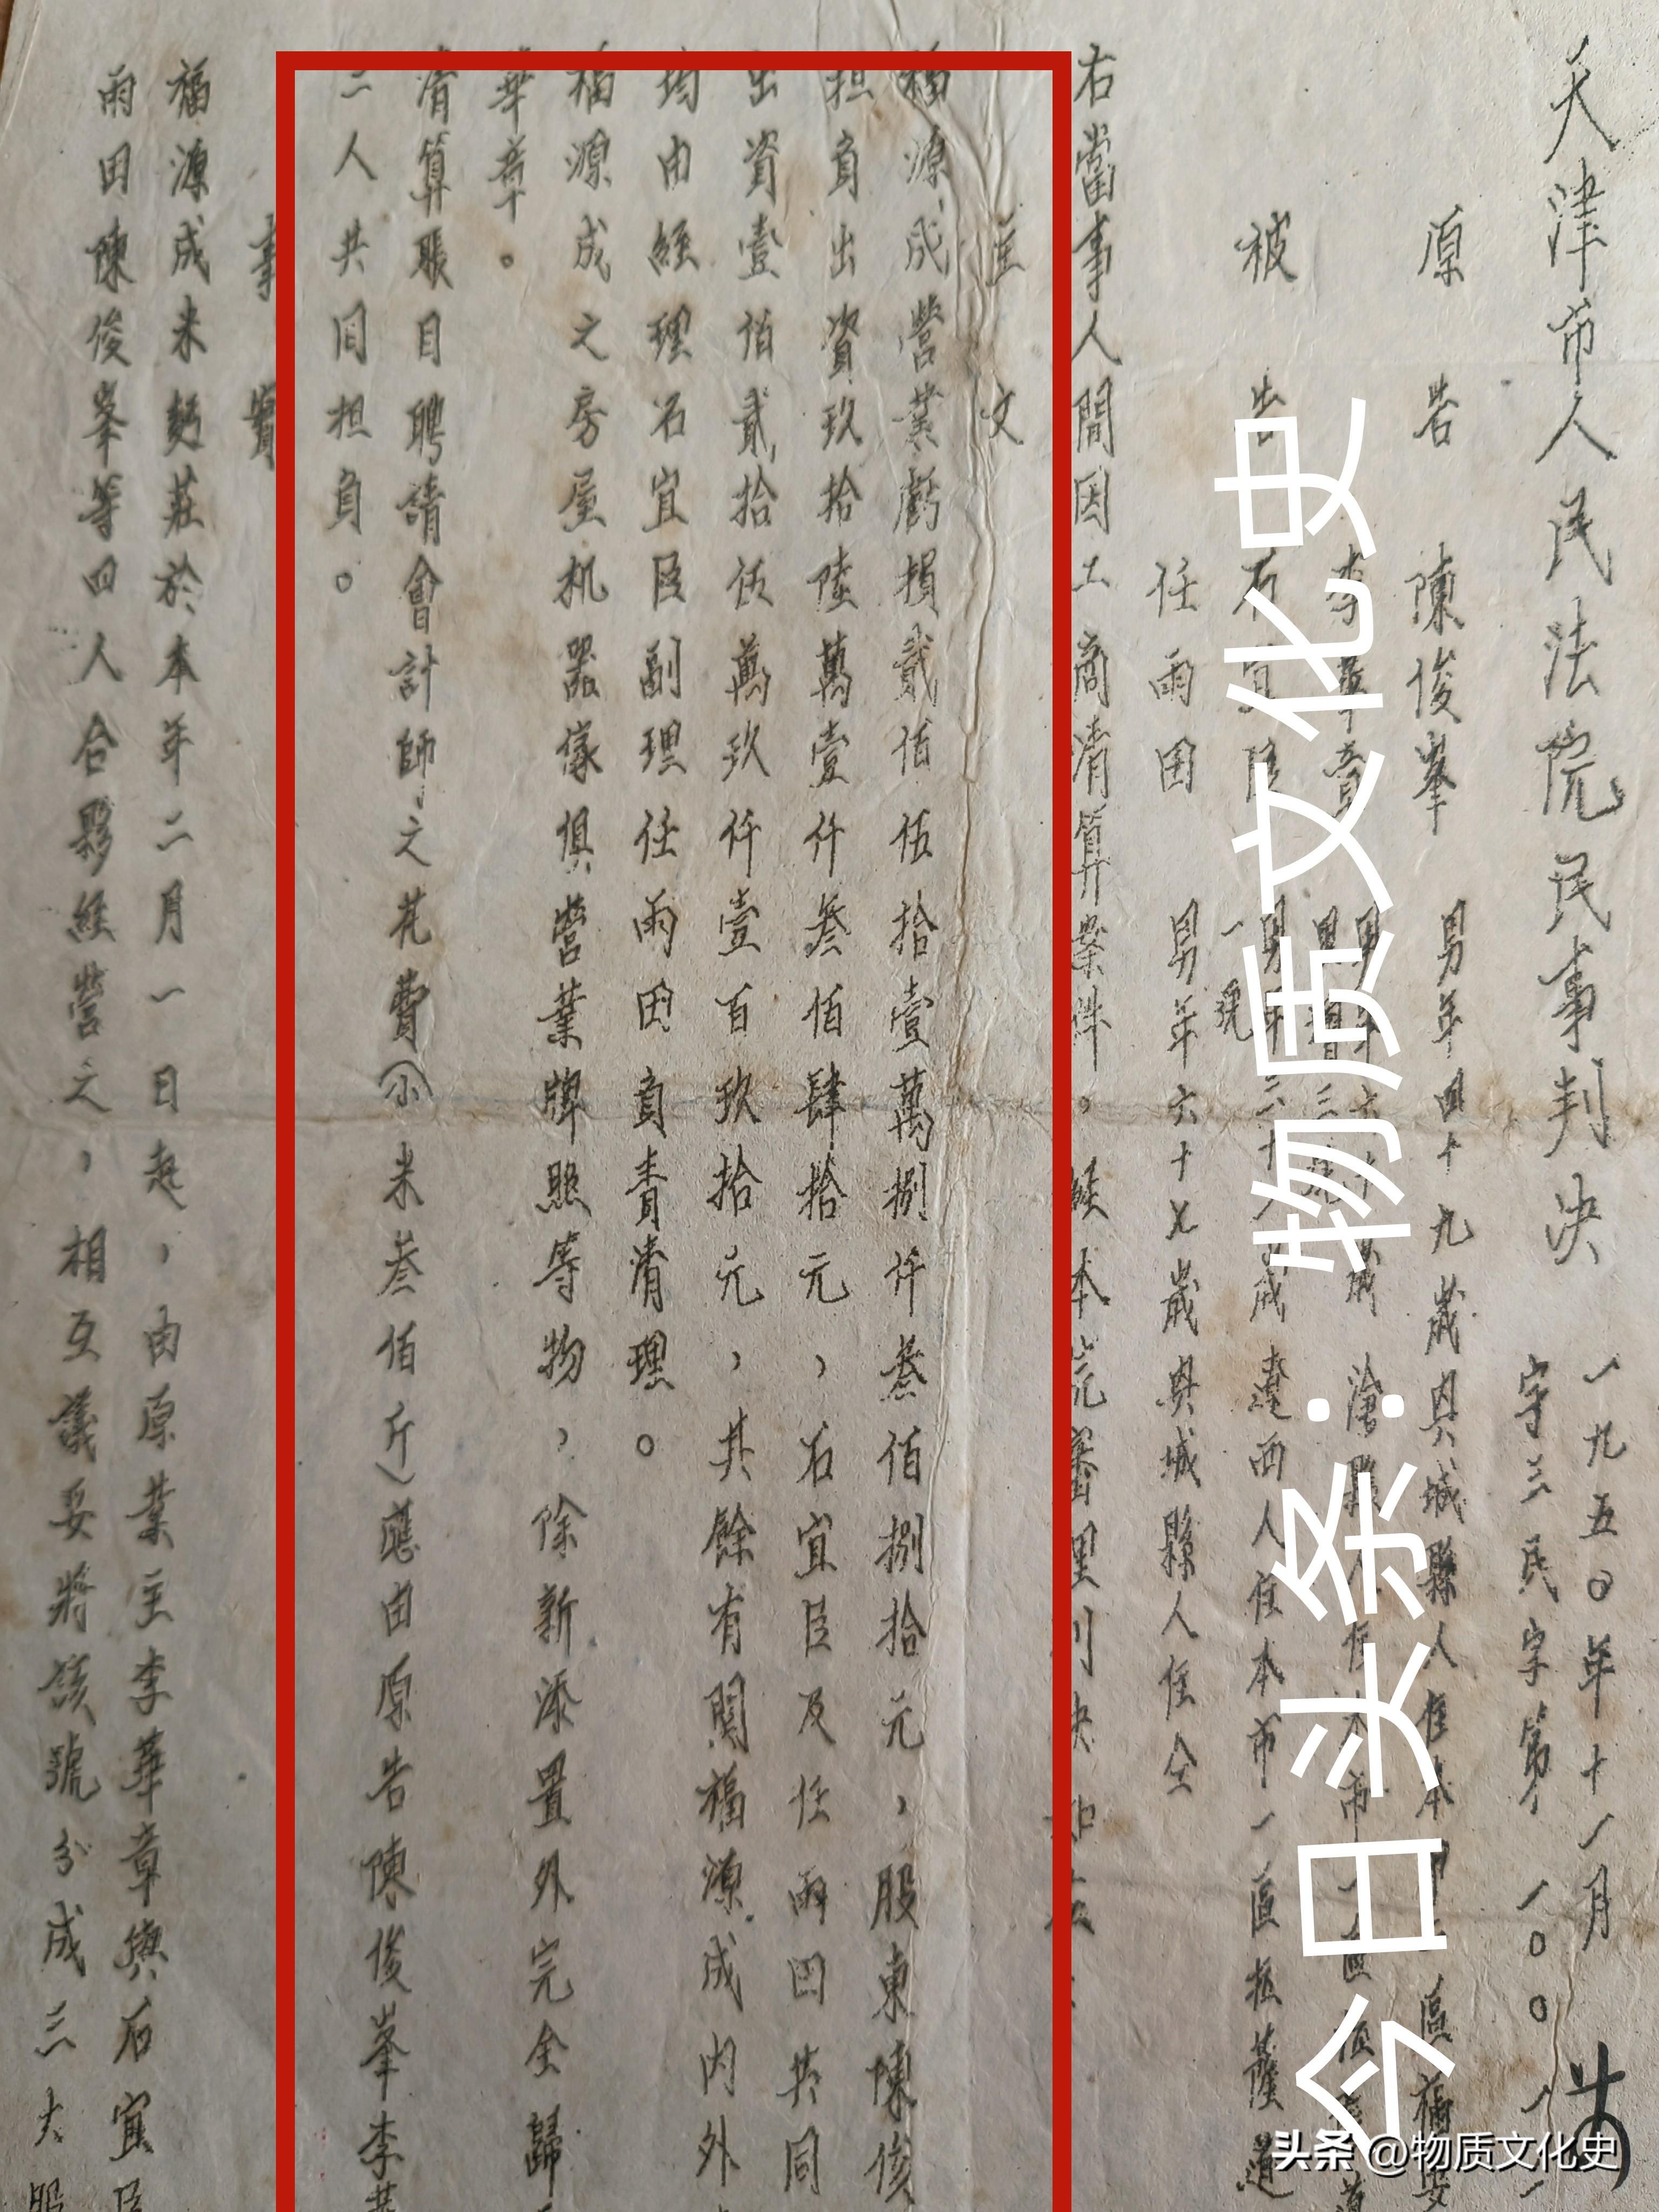 天津市人民法院民事判決
一九五〇年十一月
字三民字第一〇〇一一
原告 陳俊峯 男年四十九歲 縣人住本
李華章
被告 石宜臣 西人住本市一區
一號
任雨田 男年六十七歲 城縣人住仝
右當事人間因工商清算案件。 本院審理判決如
主文
福源成營業虧損貳佰伍拾壹萬捌仟叁佰捌拾元，股東陳俊
担負出資玖拾陸萬壹仟叁佰肆拾元，石宜臣及任雨田共同
出資壹佰貳拾伍萬玖仟壹百玖拾元，其餘有關福源成內外
均由經理石宜臣副理任雨田負責清理。
福源成之房屋机器傢俱營業牌照等物，除新添置外完全歸
華章。
清算賬目聘請會計師之花費（小米叁佰斤）應由原告陳俊峯李華
二人共同担負。
事實
福源成米麪莊於本年二月一日起，由原業主李華章與石宜臣
雨田陳俊峯等四人合夥經營之，相互議妥將該號分成三大股
今日头条：物质文化史
头条 @物质文化史